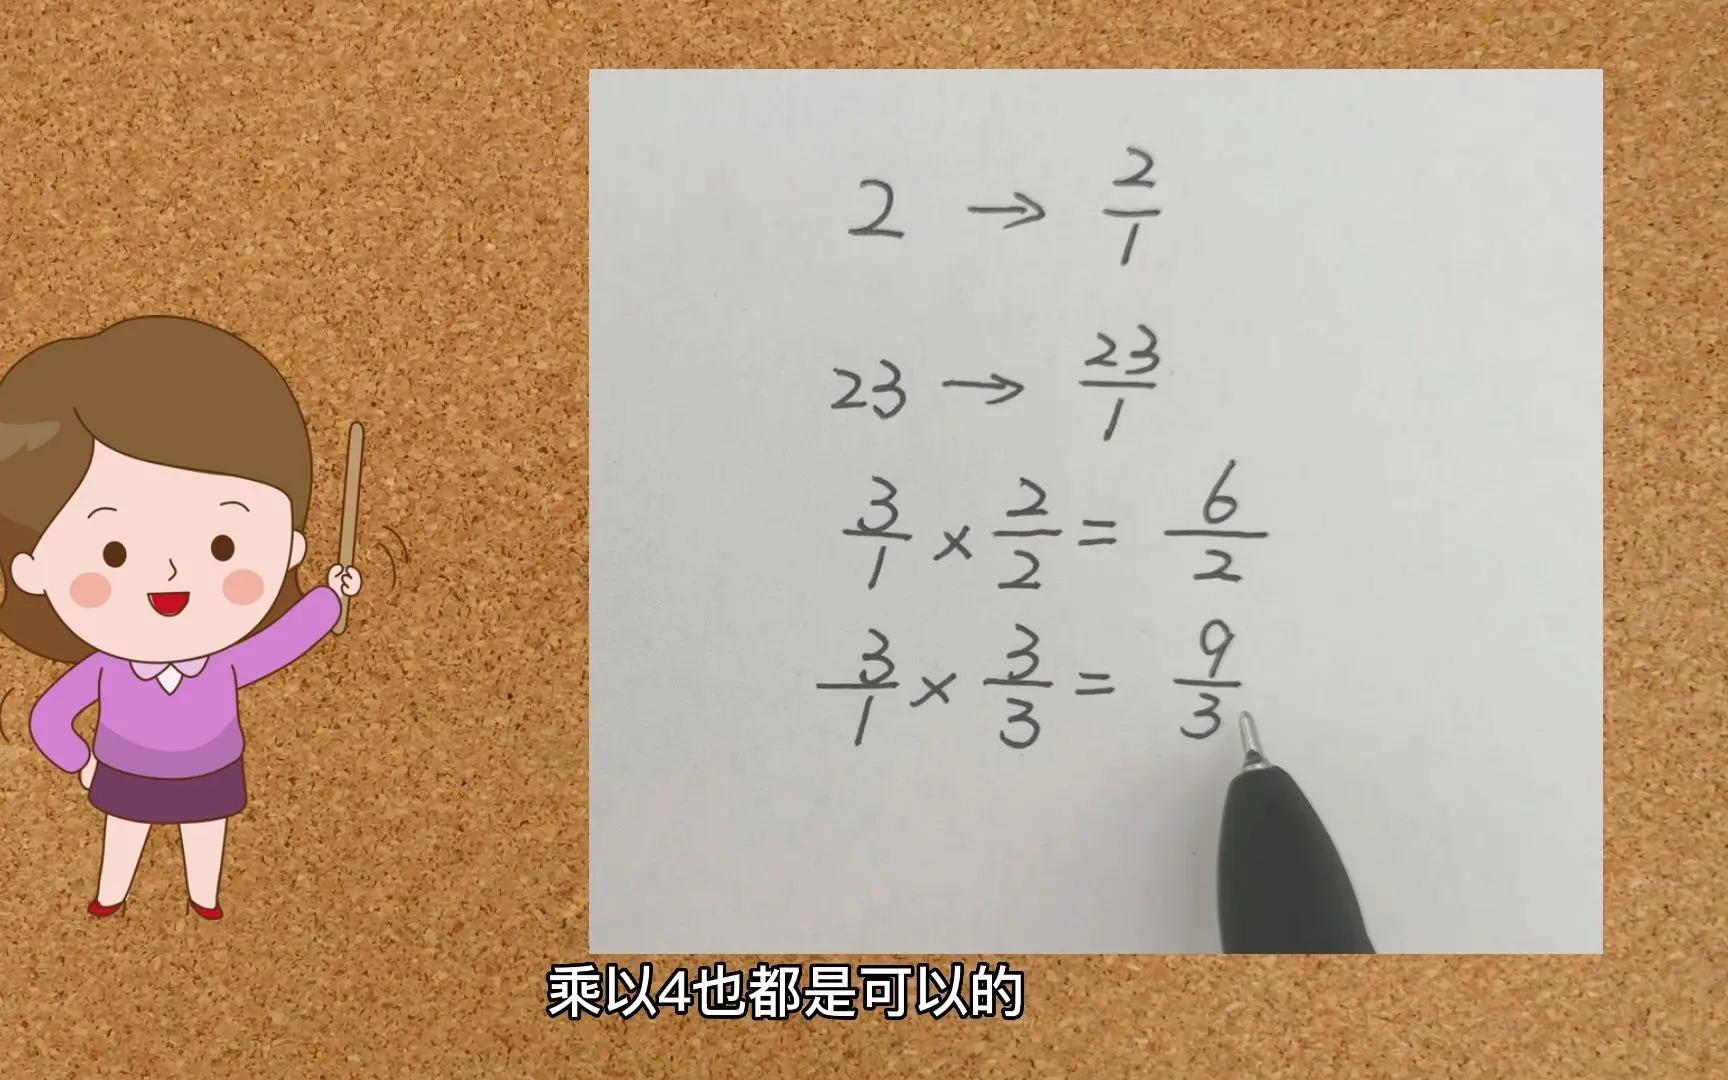 2 → 2/1
23 → 23/1
3/1 × 2/2 = 6/2
3/1 × 3/3 = 9/3
乘以4也都是可以的